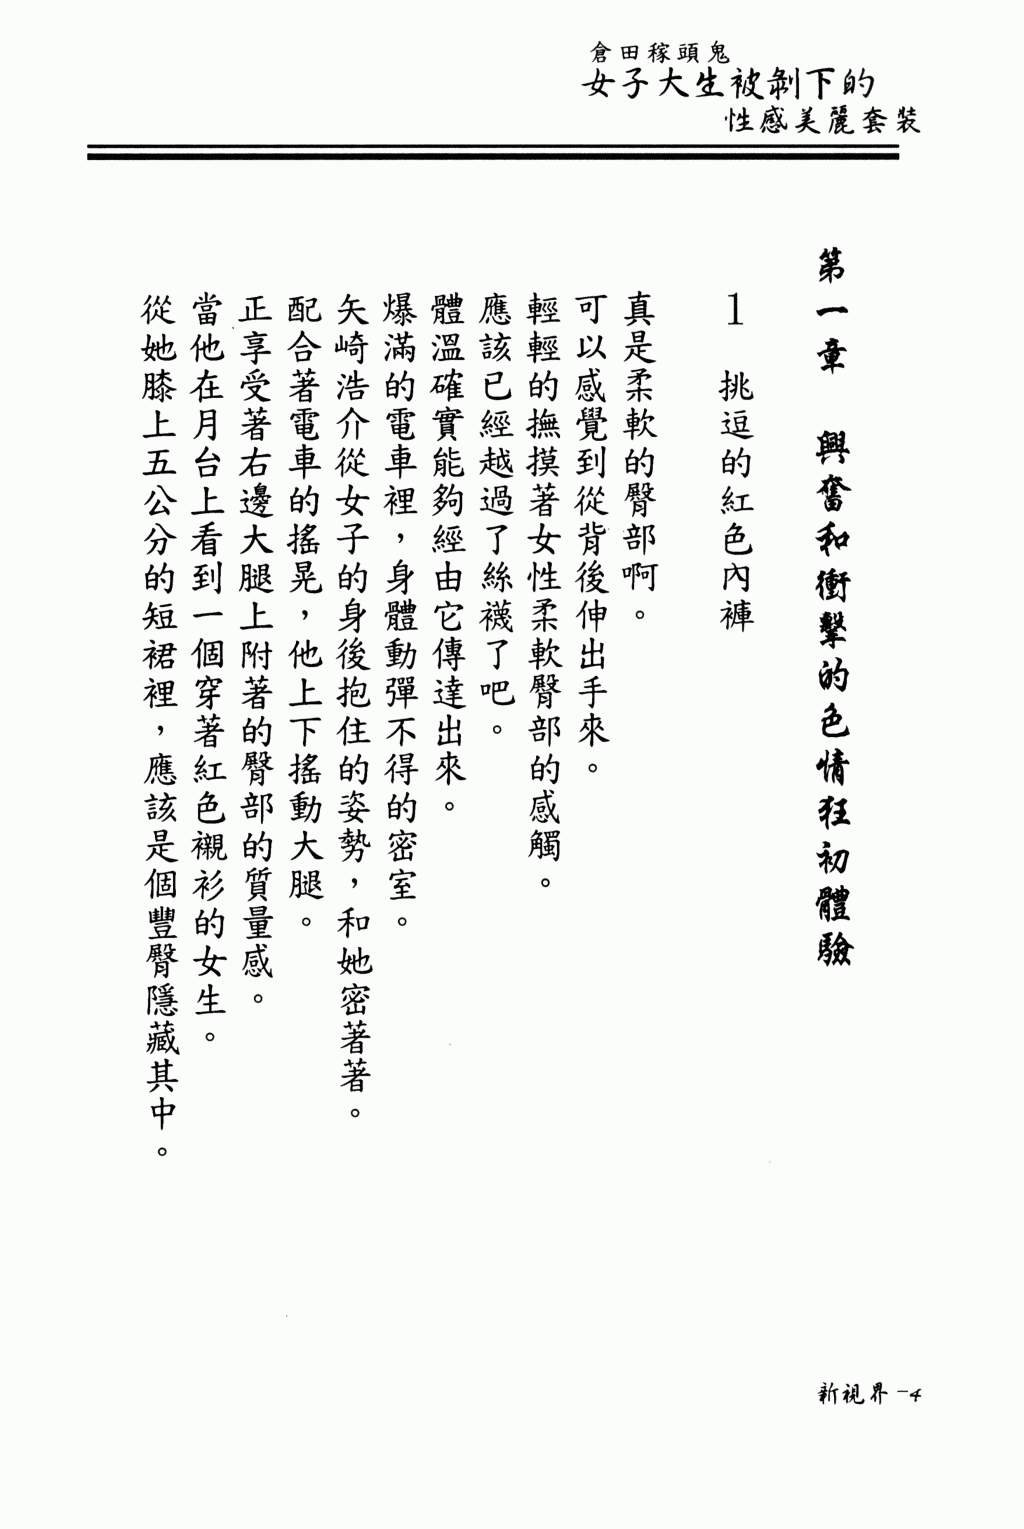 倉田稼頭鬼
女子大生被剝下的
性感美麗套裝
第一章　興奮和衝擊的色情狂初體驗
1　挑逗的紅色內褲
真是柔軟的臀部啊。
可以感覺到從背後伸出手來。
輕輕的撫摸著女性柔軟臀部的感觸。
應該已經越過了絲襪了吧。
體溫確實能夠經由它傳達出來。
爆滿的電車裡，身體動彈不得的密室。
矢崎浩介從女子的身後抱住的姿勢，和她密著著。
配合著電車的搖晃，他上下搖動大腿。
正享受著右邊大腿上附著的臀部的質量感。
當他在月台上看到一個穿著紅色襯衫的女生。
從她膝上五公分的短裙裡，應該是個豐臀隱藏其中。
新視界-4